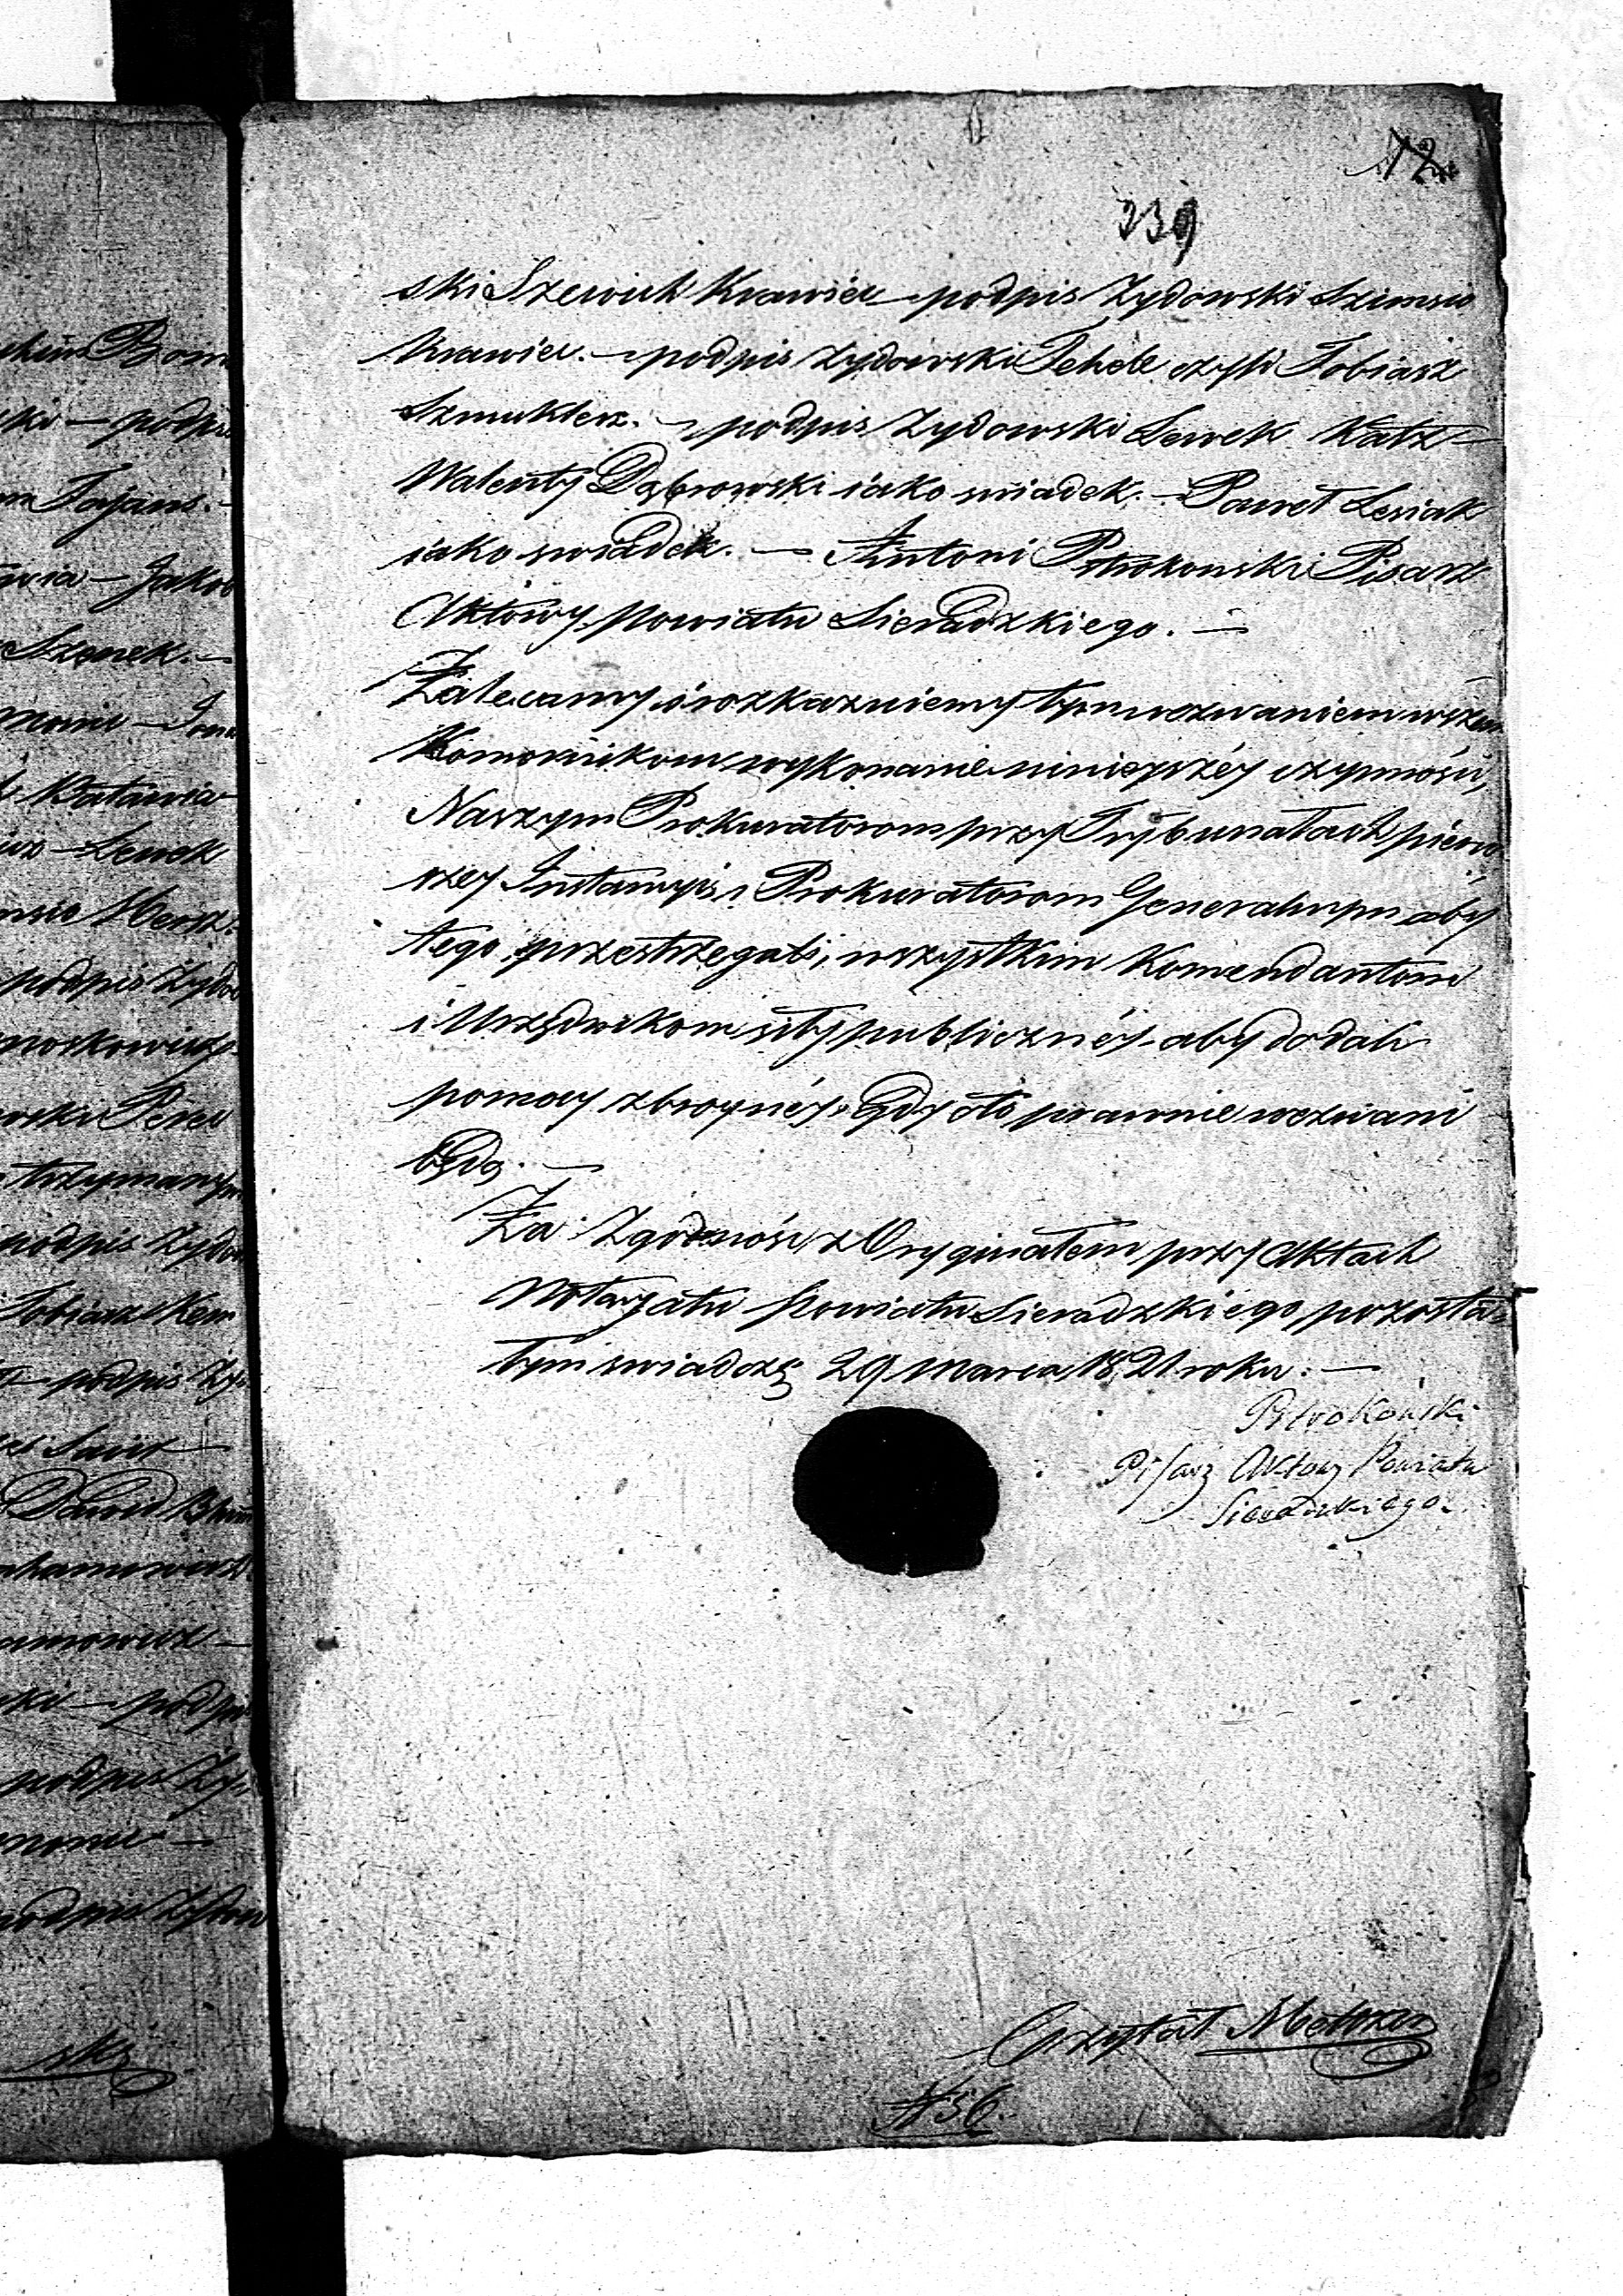 12.
239
ski Szewich Krawiec — podpis Zydowski Szimsio
Krawiec. — podpis zydowski Tehele czyli Tobiasz
Szmuklerz. — podpis Zydowski Lewek Katz —
Walenty Dąbrowski iako swiadek. — Paweł Lesiak
iako swiadek. — Antoni Pstrokonski Pisarz
Aktowy Powiatu Sieradzkiego. —
Zalecamy i rozkazuiemy tym wezwaniem wszem
Komornikom wykonanie ninieyszéy czynnósci,
Naszym Prokuratorom przy Trybunałach pierw
szey Instancyi i Prokuratorom Generalnym aby
tego przestrzegali, wszystkim Komendantom
i Urzędnikom siły publicznéy aby dodali
pomocy zbroynéy, gdy o to prawnie wezwani
będą. —
Za Zgodnósc z Oryginałem przy Aktach
Notaryatu Powiatu Sieradzkiego pozosta-
łym swiadczę 29 Marca 1821 roku. —
Pstrokoński
Pisarz Aktowy Powiatu
Sieradzkiego.
Czytał
N 56.
podpis
Jakob
Szmek. —
Lewek
podpis Zydow
podpis Zydow
podpis Zy
Dawid
podpis Zy